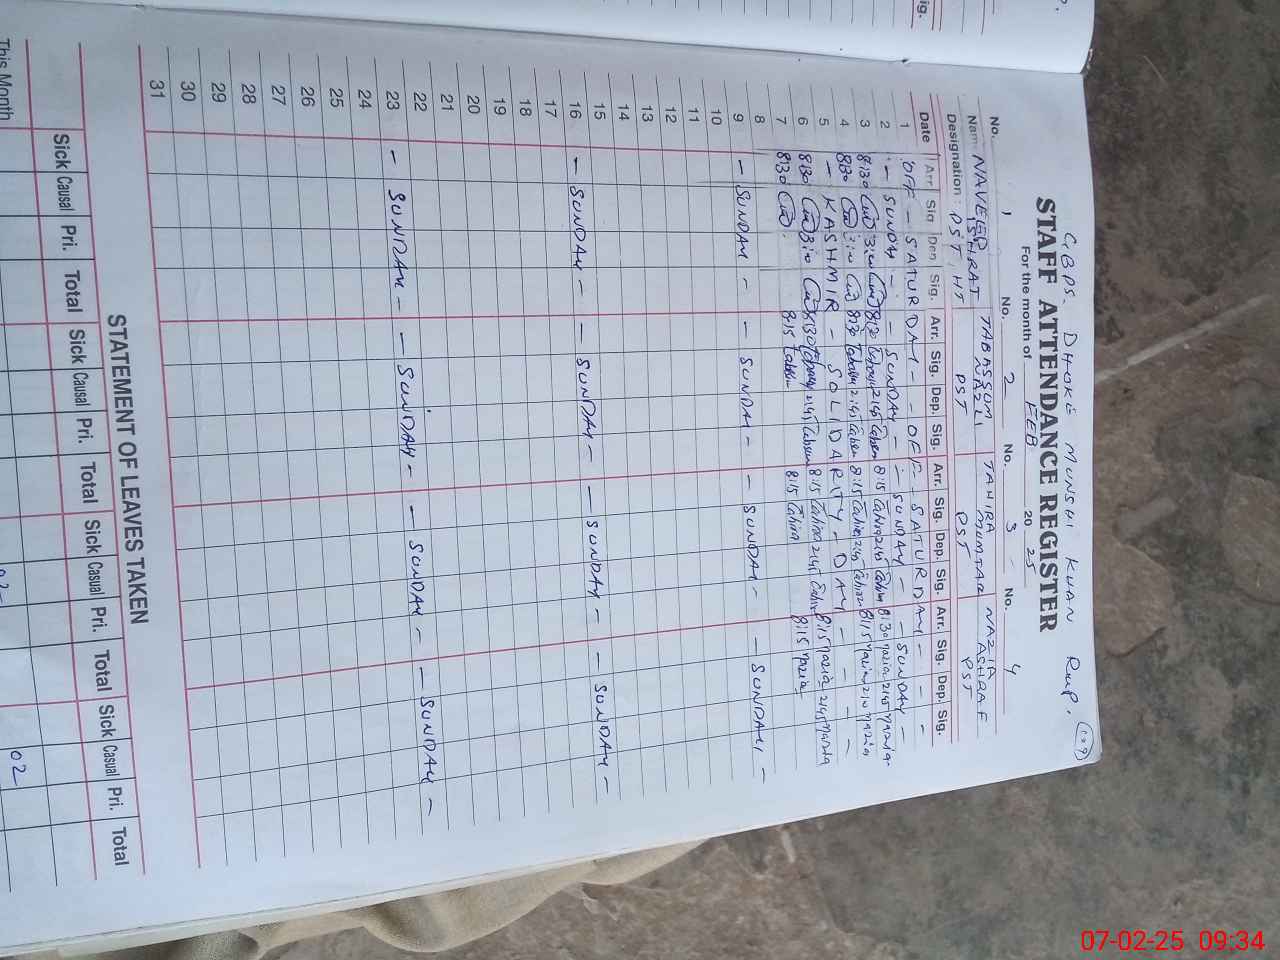 GBPS. DHOKE MUNSHI KHAN RWP.
STAFF ATTENDANCE REGISTER
For the month of FEB 2025
No. 1 No. 2 No. 3 No. 4
Name NAVEED ISHRAT TABASSUM NAZLI TAHIRA MUMTAZ NAZIA ASHRAF
Designation : PST, HT PST PST PST
Date Arr. Sig Dep Sig. Arr. Sig. Dep. Sig. Arr. Sig. Dep. Sig. Arr. Sig. Dep. Sig.
1 OFF - SATURDAY - - OFF - SATURDAY - - -
2 - SUNDAY - - SUNDAY - - SUNDAY - - SUNDAY -
3 8:30 8:30 2:45 8:15 2:45 8:30 Nazia 2:45 Nazia
4 8:30 3:10 8:30 2:45 8:15 2:45 8:15 Nazia 2:10 Nazia
5 - KASHMIR - SOLIDARITY - DAY - - - -
6 8:30 3:10 8:30 2:45 8:15 2:45 8:15 Nazia 2:45 Nazia
7 8:30 8:15 8:15 Tahira 8:15 Nazia
8
9 - SUNDAY - - SUNDAY - - SUNDAY - - SUNDAY -
10
11
12
13
14
15
16 - SUNDAY - - SUNDAY - - SUNDAY - - SUNDAY -
17
18
19
20
21
22
23 - SUNDAY - - SUNDAY - - SUNDAY - - SUNDAY -
24
25
26
27
28
29
30
31
STATEMENT OF LEAVES TAKEN
Sick Casual Pri. Total Sick Casual Pri. Total Sick Casual Pri. Total Sick Casual Pri. Total
02
This Month
07-02-25 09:34